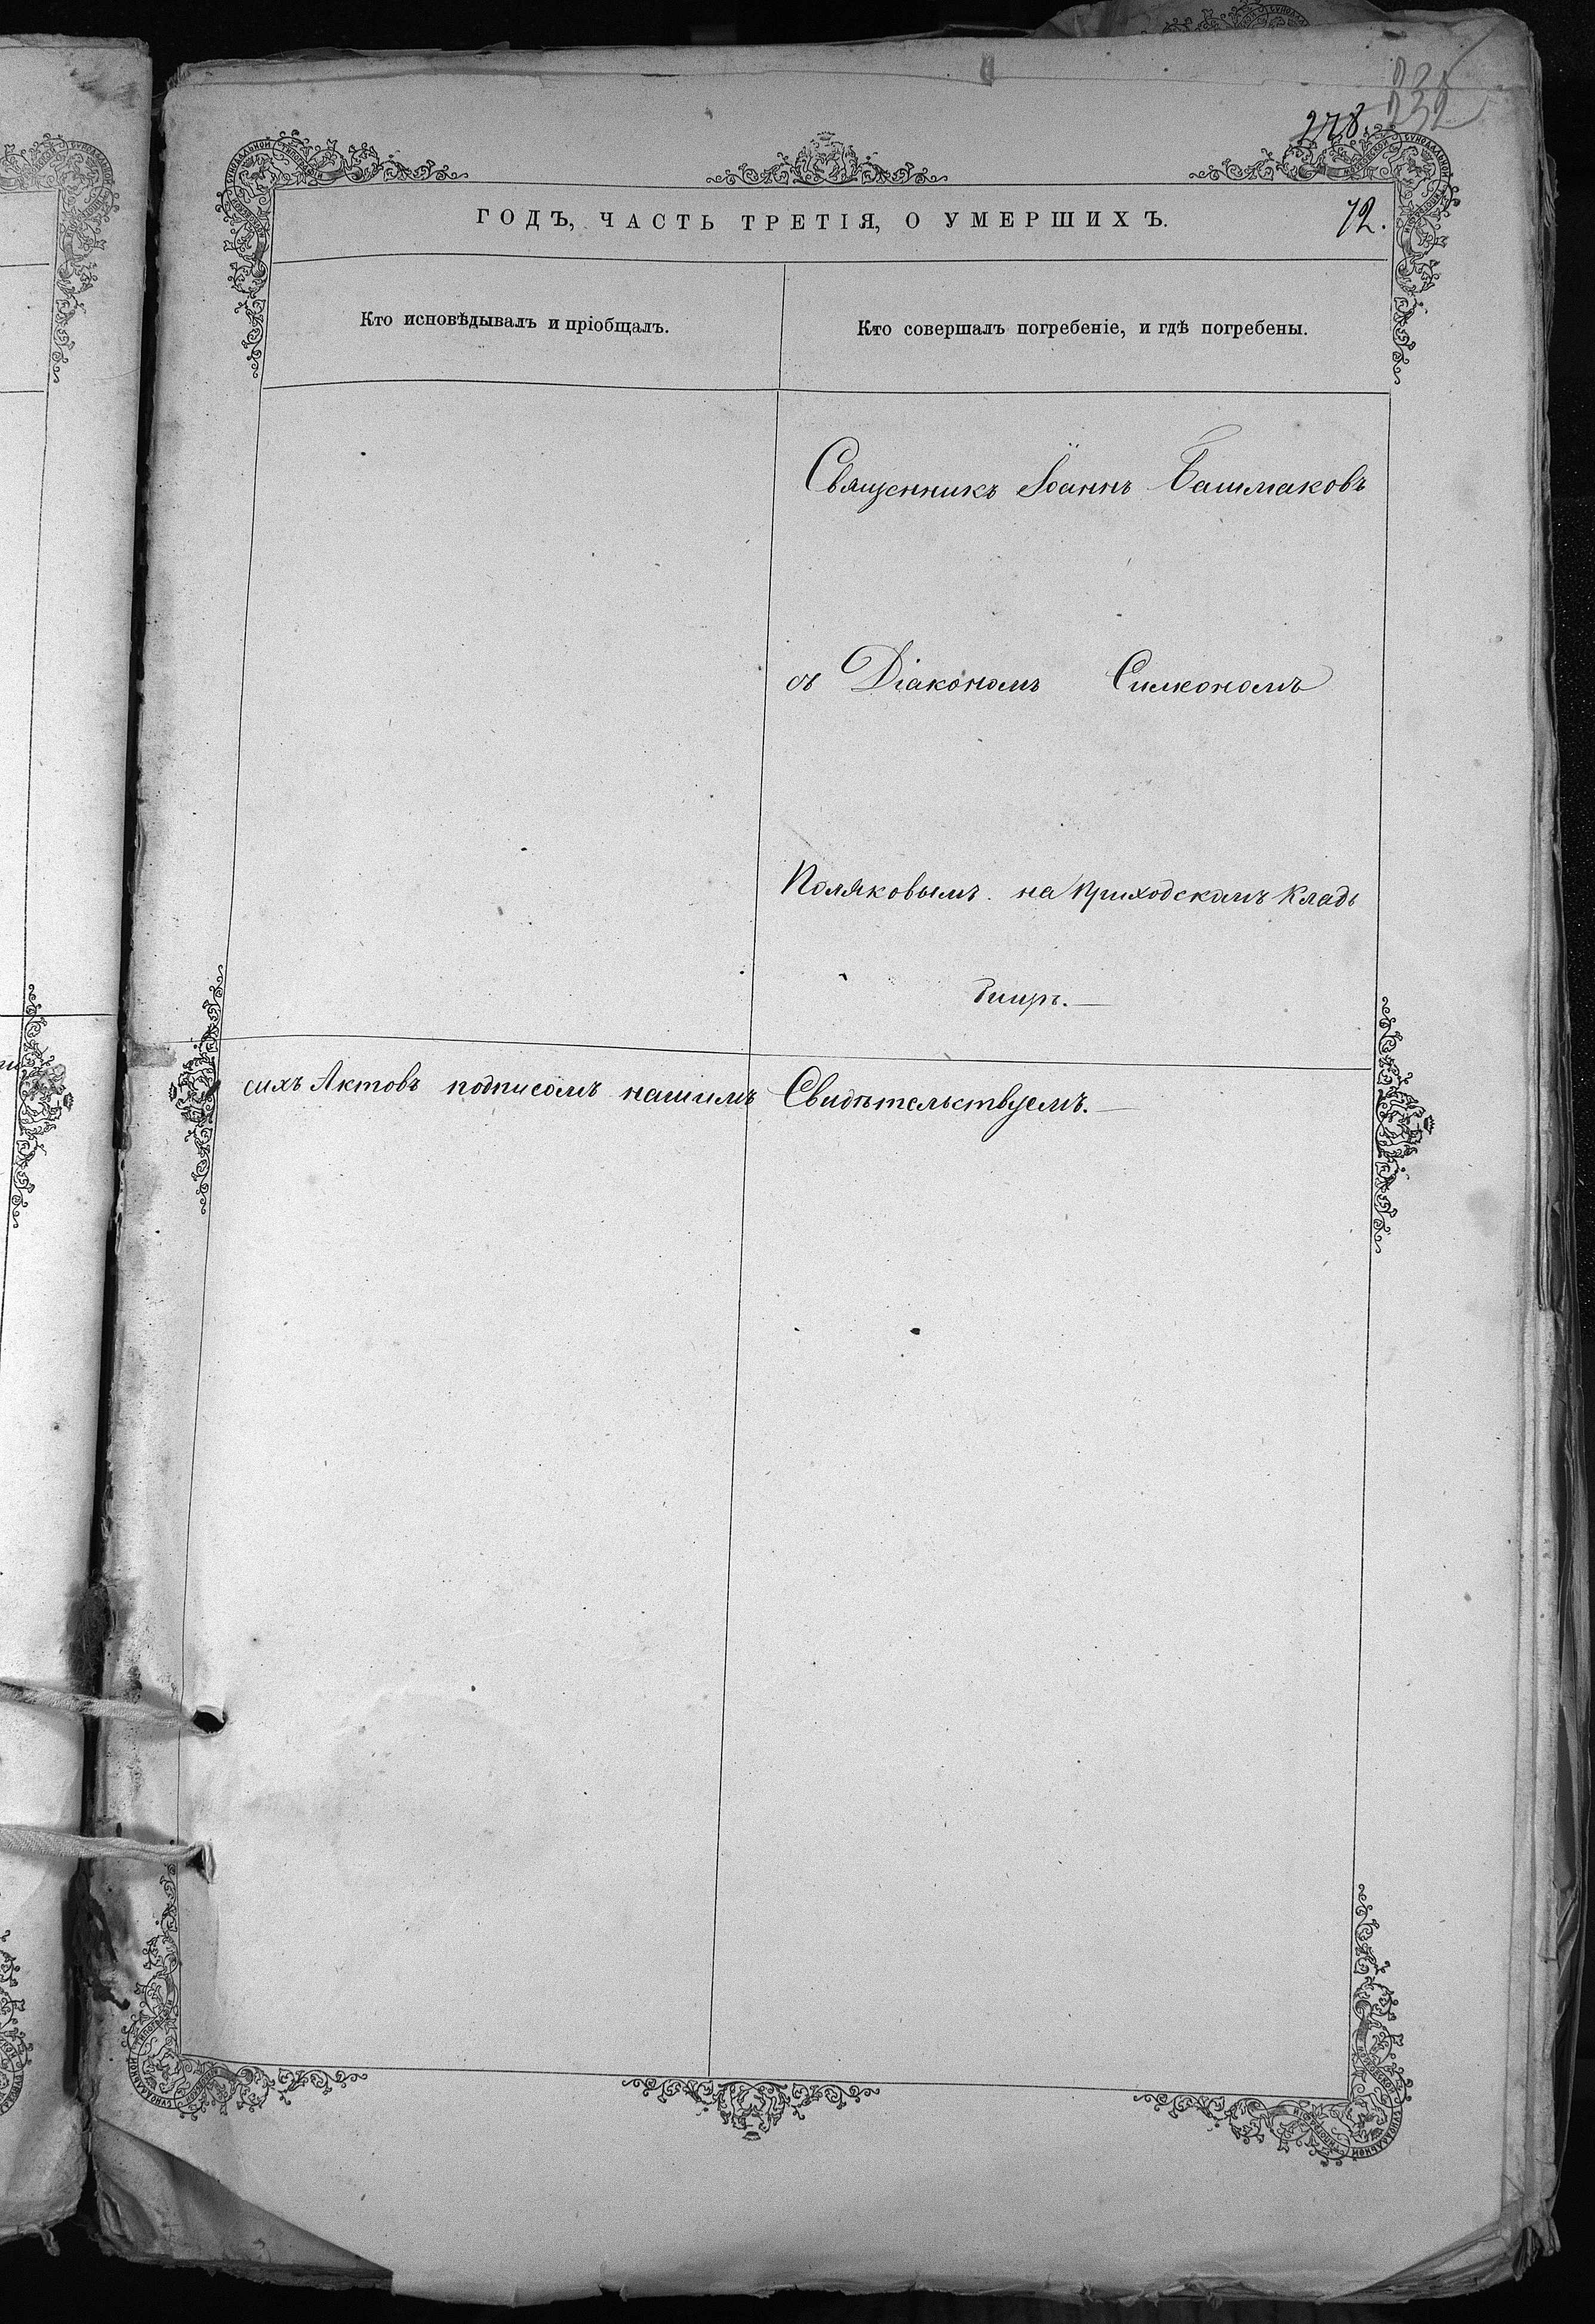 278.
232
ГОДЪ, ЧАСТЬ ТРЕТІЯ, О УМЕРШИХЪ.
72.
Кто исповѣдывалъ и пріобщалъ.
Кто совершалъ погребеніе, и гдѣ погребены.
Священникъ Іоаннъ Башмаковъ
съ Діакономъ Симеономъ
Поляковымъ. на приходскомъ Кладь
бищѣ.—
сихъ Актовъ подписомъ нашимъ Свидѣтельствуемъ.—